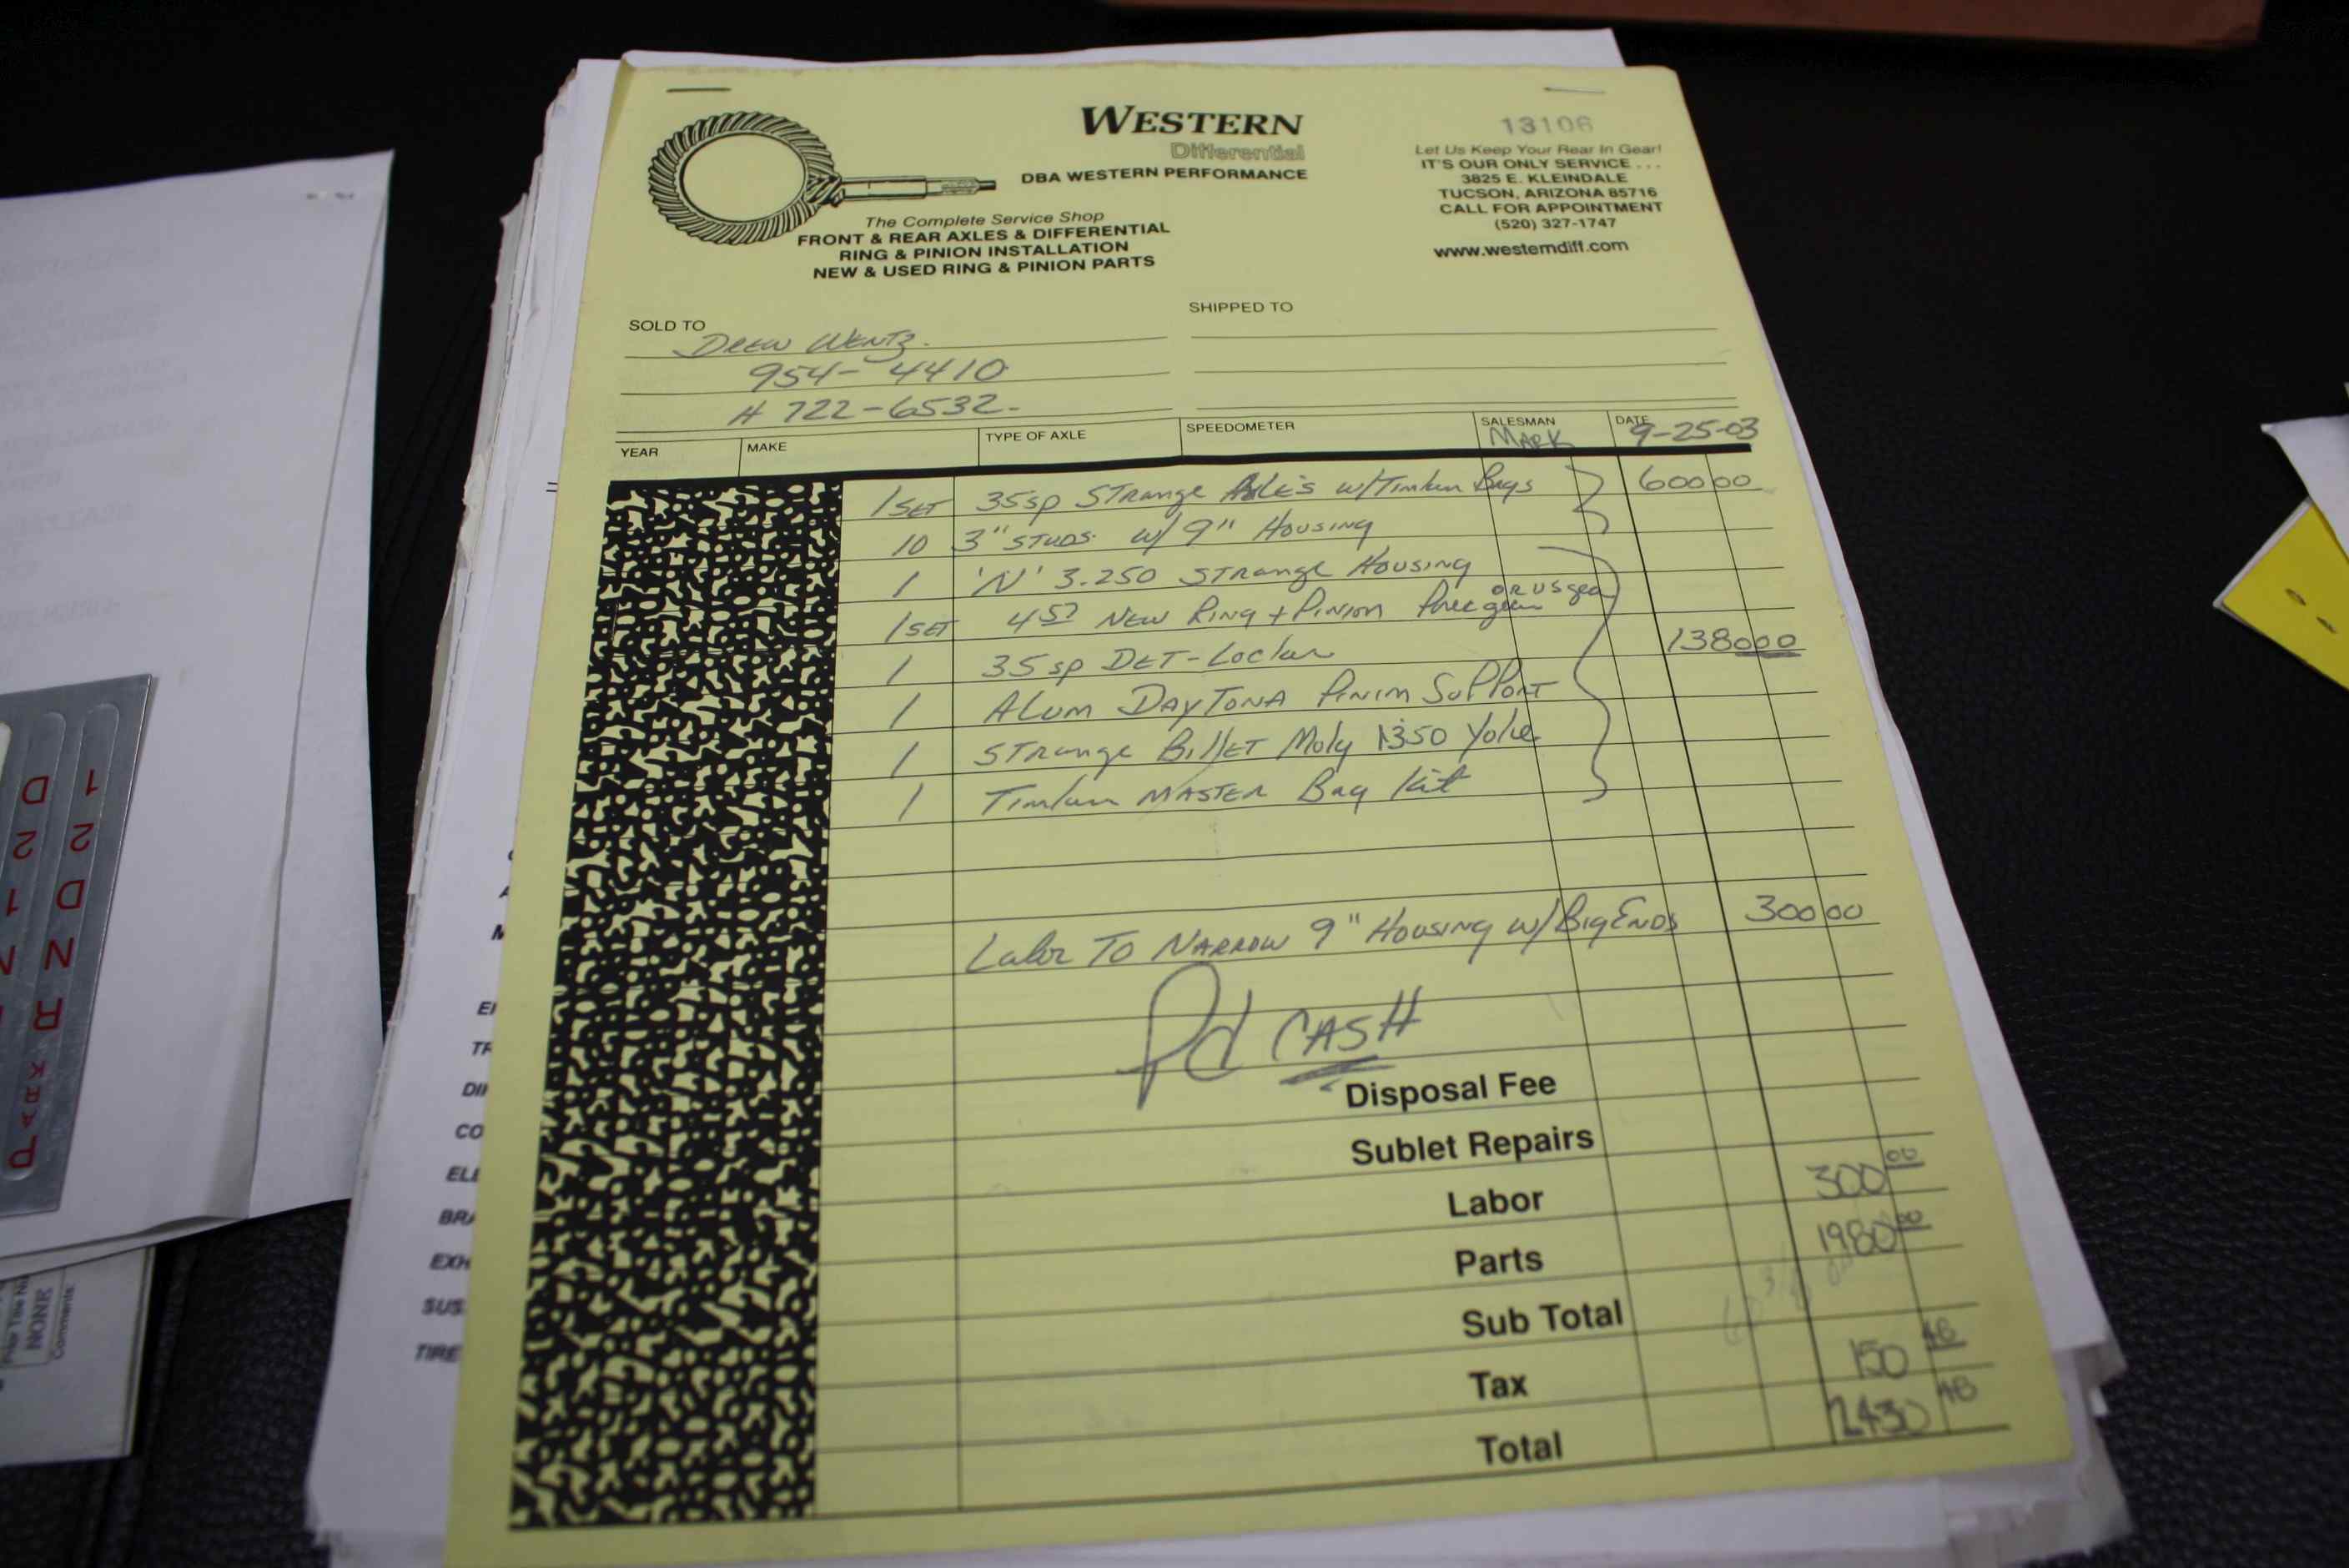 WESTERN
Differential
DBA WESTERN PERFORMANCE
The Complete Service Shop
FRONT & REAR AXLES & DIFFERENTIAL
RING & PINION INSTALLATION
NEW & USED RING & PINION PARTS
13106
Let Us Keep Your Rear In Gear!
IT'S OUR ONLY SERVICE . . .
3825 E. KLEINDALE
TUCSON, ARIZONA 85716
CALL FOR APPOINTMENT
(520) 327-1747
www.westerndiff.com
SOLD TO
DREW WENTZ.
954-4410
H 722-6532-
SHIPPED TO
YEAR MAKE TYPE OF AXLE SPEEDOMETER SALESMAN MARK DATE 9-25-03
1 SET 35sp STrange Axle's w/Timken Brgs 600 00
10 3" STUDS w/ 9" HOUSING
1 'N' 3.250 STrange Housing
1 SET 4 57 NEW Ring + Pinion OR US gear
1 35 sp DET-Locker 1380 00
1 ALUM DAYTONA Pinion SUPPORT
1 STrange BillET Moly 1350 Yoke
1 Timken MASTER Brg Kit
Labor TO NARROW 9" HOUSING w/BIG ENDS 300 00
Pd CASH
Disposal Fee
Sublet Repairs
Labor 300 00
Parts 1980 00
Sub Total
Tax 150 48
Total 2430 48
EXH
SUS
TIRE
BRA
ELE
CO
DI
TR
1 2 D N R PARK
1 2 D N
NONE
Comments